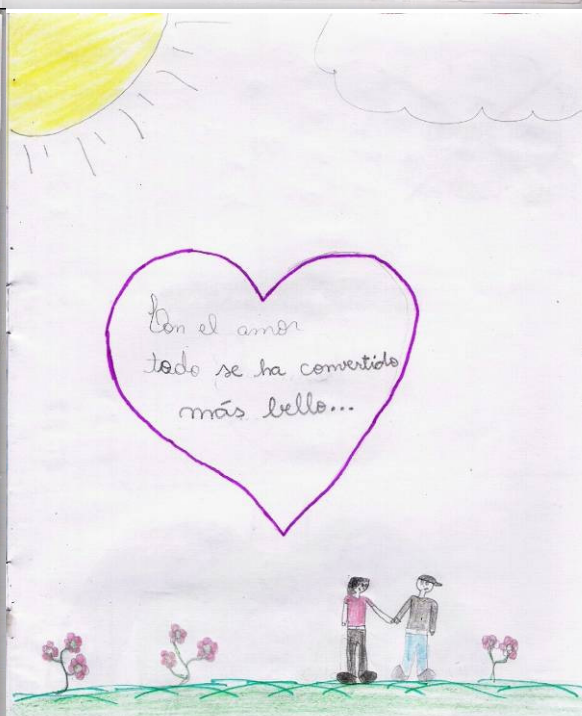 Con el amor
todo se ha convertido
más bello...